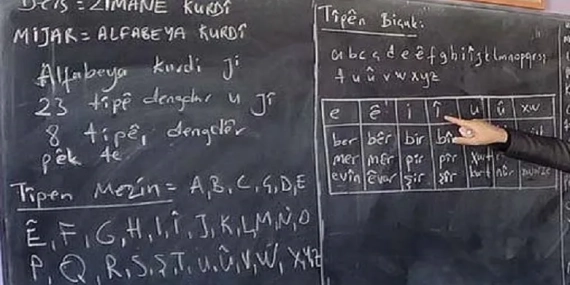 Ders = ZIMANE KURDÎ
MIJAR = ALFABEYA KURDÎ
Alfabeya Kurdi ji
23 tipê dengdar u Jî
8 tipê, dengdêr
pêk te
Tîpen Mezin = A, B, C, Ç, D, E
Ê, F, G, H, I, Î, J, K, L, M, N, O
P, Q, R, S, Ş, T, U, Û, V, W, X, Y, Z
Tîpên Biçuk:
a b c ç d e ê f g h i î j k l m n o p q r s ş
t u û v w x y z
e ê i î u û xw
ber bêr bir bîr
mer mêr pir pîr
evîn êvar şir şîr kurt nûr